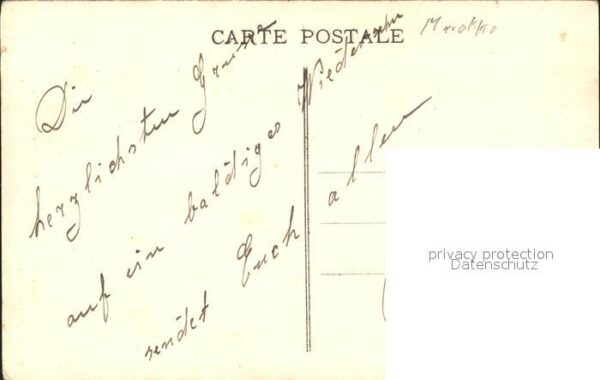 CARTE POSTALE
Marokko
Die
herzlichsten Grüsse
auf ein baldiges Wiedersehn
sendet Euch allen
privacy protection
Datenschutz